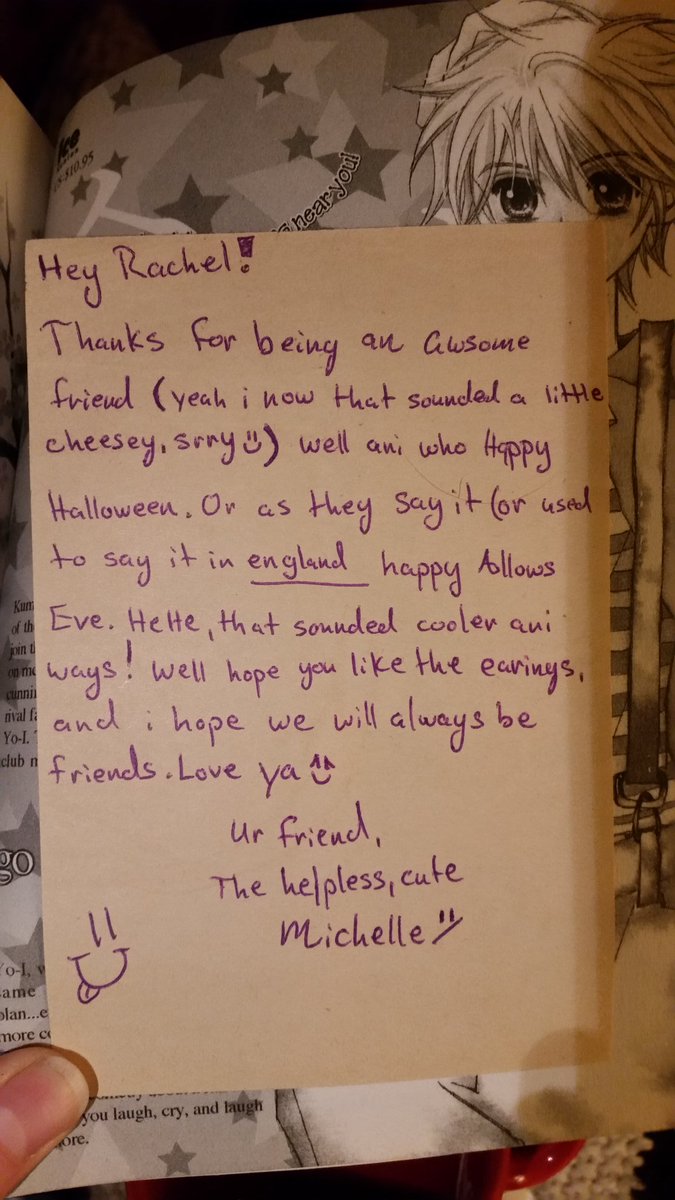 US-$10.95
near you!
Hey Rachel!
Thanks for being an awsome
friend (yeah i now that sounded a little
cheesey, srry) well ani who Happy
Halloween. Or as they say it (or used
to say it in england happy Allows
Eve. HeHe, that sounded cooler ani
ways! Well hope you like the earings,
and i hope we will always be
friends. Love ya
Ur friend,
The helpless, cute
Michelle
of the
join
on
rival
Yo-I.
club
go
Yo-I,
same
plan...e
more
you laugh, cry, and laugh